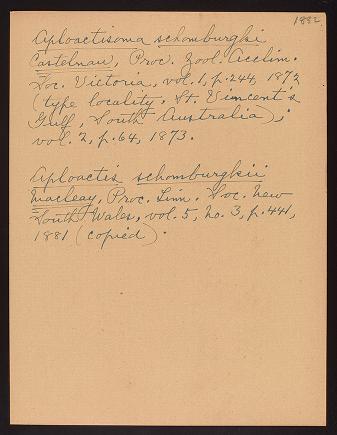 1882
Aploactisoma schomburgki
Castelnau, Proc. Zool. Acclim.
Soc. Victoria, vol. 1, p. 244, 1872
(type locality, St. Vincent's
Gulf, South Australia);
vol. 2, p. 64, 1873.
Aploactis schomburgkii
Macleay, Proc. Linn. Soc. New
South Wales, vol. 5, no. 3, p. 441,
1881 (copied).